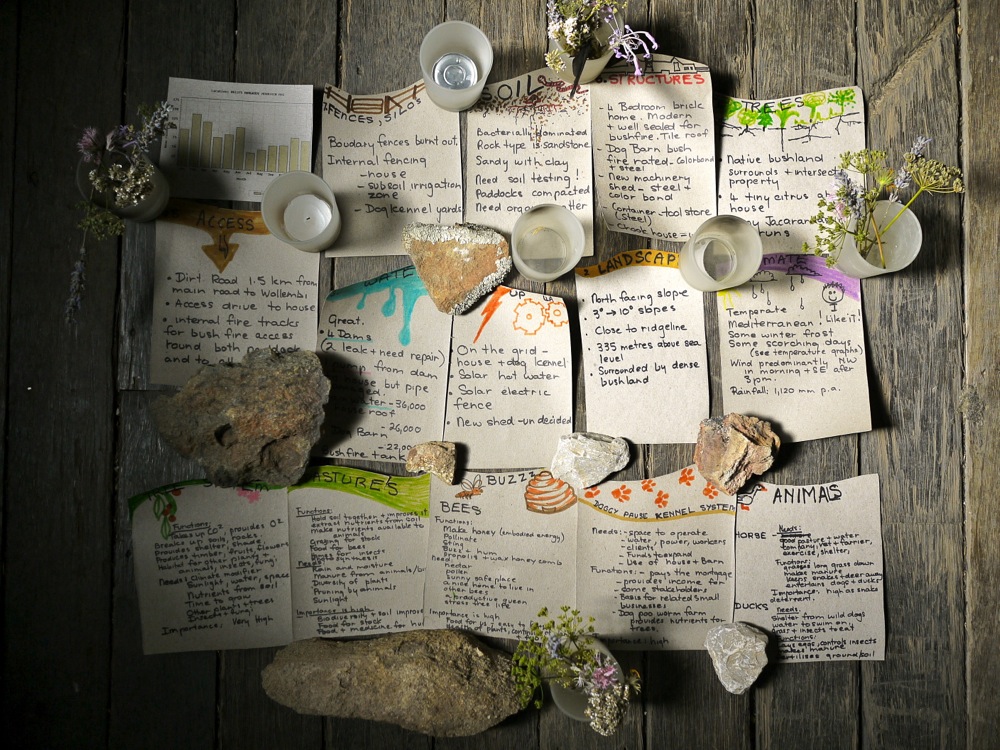 FENCES, SILOS
Boudary fences burnt out.
Internal fencing
- house
- subsoil irrigation
zone
- Dog kennel yards
SOIL
Bacterially dominated
Rock type is sandstone
Sandy with clay
Need soil testing!
Paddocks compacted
Need
STRUCTURES
- 4 Bedroom brick
home. Modern
+ well sealed for
bushfire. Tile roof
- Dog Barn bush
fire rated - Colorbond
+ steel
- New machinery
shed - steel +
color bond
- Container - tool store
(steel)
- Chook house
TREES
Native bushland
surrounds + intersect
property
4 tiny citrus
house!
Jacaran
ACCESS
• Dirt Road 1.5 km from
main road to Wollembi
• Access drive to house
• internal fire tracks
for bush fire access
round both paddock
and to
Great.
4 Dams
(2 leak + need repair)
from dam
but pipe
- 36,000
roof
Barn
- 26,000
- 22,000
bushfire tank
On the grid -
house + dog kennel
• Solar hot water
• Solar electric
fence
• New shed - undecided
LANDSCAP
• North facing slope
3° → 10° slopes
• Close to ridgeline
• 335 metres above sea
level
• Surrounded by dense
bushland
Temperate
Mediterranean! I Like iT!
Some winter frost
Some scorching days
(see temperature graphs)
Wind predominantly NW
in morning + SE after
3pm.
Rainfall: 1,120 mm p.a.
Functions:
Takes up CO², provides O²
Breaks up soils, rocks
Provides shelter, shade
Produces timber, fruits, flowers
Habitat for other plants +
animals, insects, fungi
Needs: Climate modifier
Sunlight, water, space
Nutrients from soil
Time to grow
Other plants + trees
Insects + fungi
Importance: Very High
PASTURE'S
Functions:
Hold soil together + improves it
extract nutrients from soil
make nutrients available to
animals
Grazing for stock
Food for bees
Homes for insect
Needs:
Rain and moisture
Manure from animals/
Diversity of plants
Pruning by animals
Sunlight
Importance is high
Biodiversity + soil improve
Food for stock
Food + medicine for hu
BUZZ
BEES
Functions:
Make honey (embodied energy)
Pollinate
Sting
Buzz + hum
Propolis + wax honey comb
Need:
nectar
pollen
sunny safe place
a nice home to live in
other bees
+ productive queen
stress free life
Importance: high
DOGGY PAUSE KENNEL SYSTEM
Needs: - space to operate
- water, power, workers
- clients
- Funds to expand
- Use of house + Barn
Functions: - pays the mortgage
- provides income for
some stakeholders
- Basis for related small
businesses
- Dog poo worm farm
provides nutrients for
trees.
high
ANIMALS
HORSE -
Needs:
good pasture + water
company, vet + farrier,
exercise, shelter,
Functions:
grazes long grass down
makes manure
keeps snakes + deer away
entertains dogs + ducks
Importance: high as snake
deterrent.
DUCKS
Needs:
Shelter from wild dogs
water to swim on
Grass + insects to eat
Functions:
lays eggs, controls insects
makes manure
fertilises ground/soil